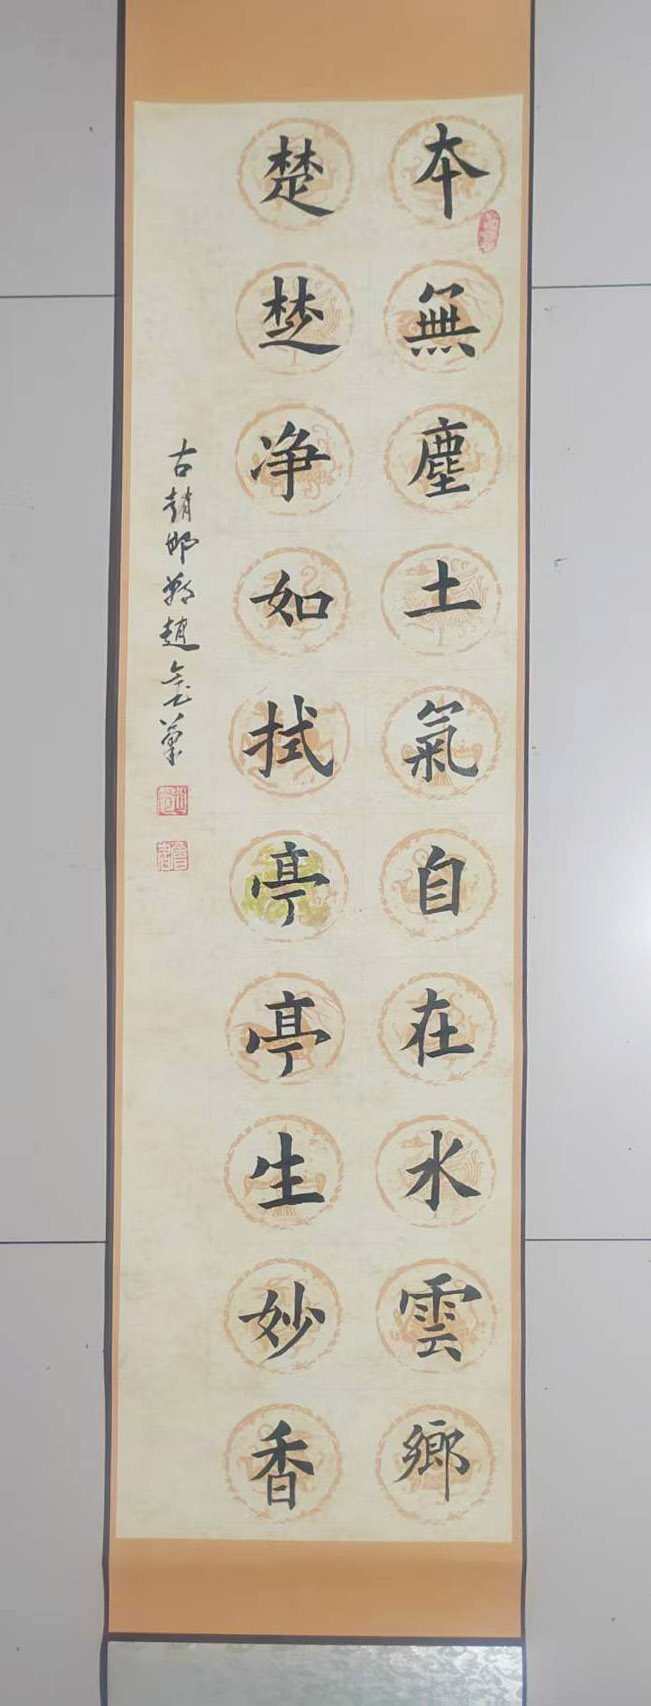 本無塵土氣自在水雲鄉
楚楚净如拭亭亭生妙香
古趙邯鄲趙